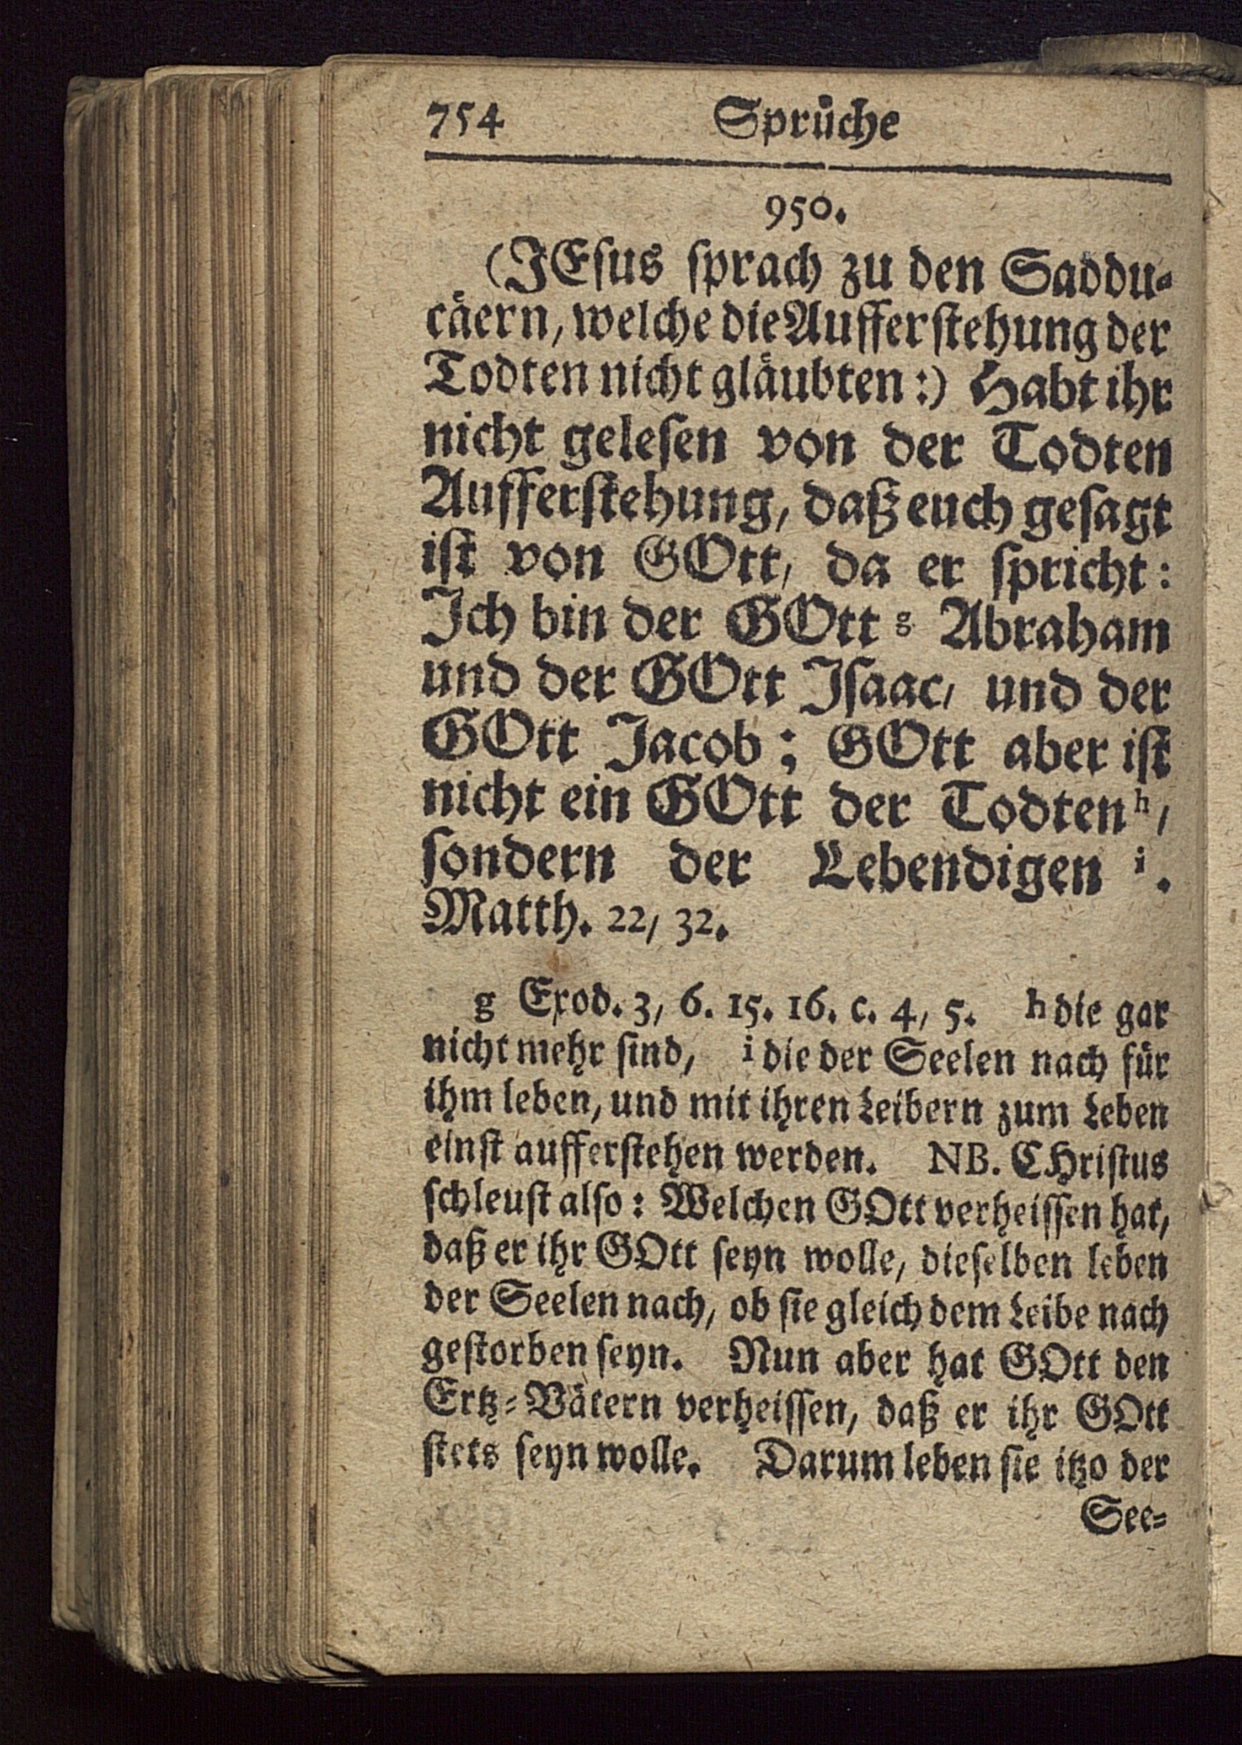 754 Sprüche
950.
(JEsus sprach zu den Saddu-
cäern, welche die Aufferstehung der
Todten nicht gläubten:) Habt ihr
nicht gelesen von der Todten
Aufferstehung, daß euch gesagt
ist von GOtt, da er spricht:
Ich bin der GOtt g Abraham
und der GOtt Isaac, und der
GOtt Jacob; GOtt aber ist
nicht ein GOtt der Todten h,
sondern der Lebendigen i.
Matth. 22, 32.
g Exod. 3, 6. 15. 16. c. 4, 5. h die gar
nicht mehr sind, i die der Seelen nach für
ihm leben, und mit ihren Leibern zum Leben
einst aufferstehen werden. NB. CHristus
schleust also: Welchen GOtt verheissen hat,
daß er ihr GOtt seyn wolle, dieselben leben
der Seelen nach, ob sie gleich dem Leibe nach
gestorben seyn. Nun aber hat GOtt den
Ertz-Vätern verheissen, daß er ihr GOtt
stets seyn wolle. Darum leben sie itzo der
See-